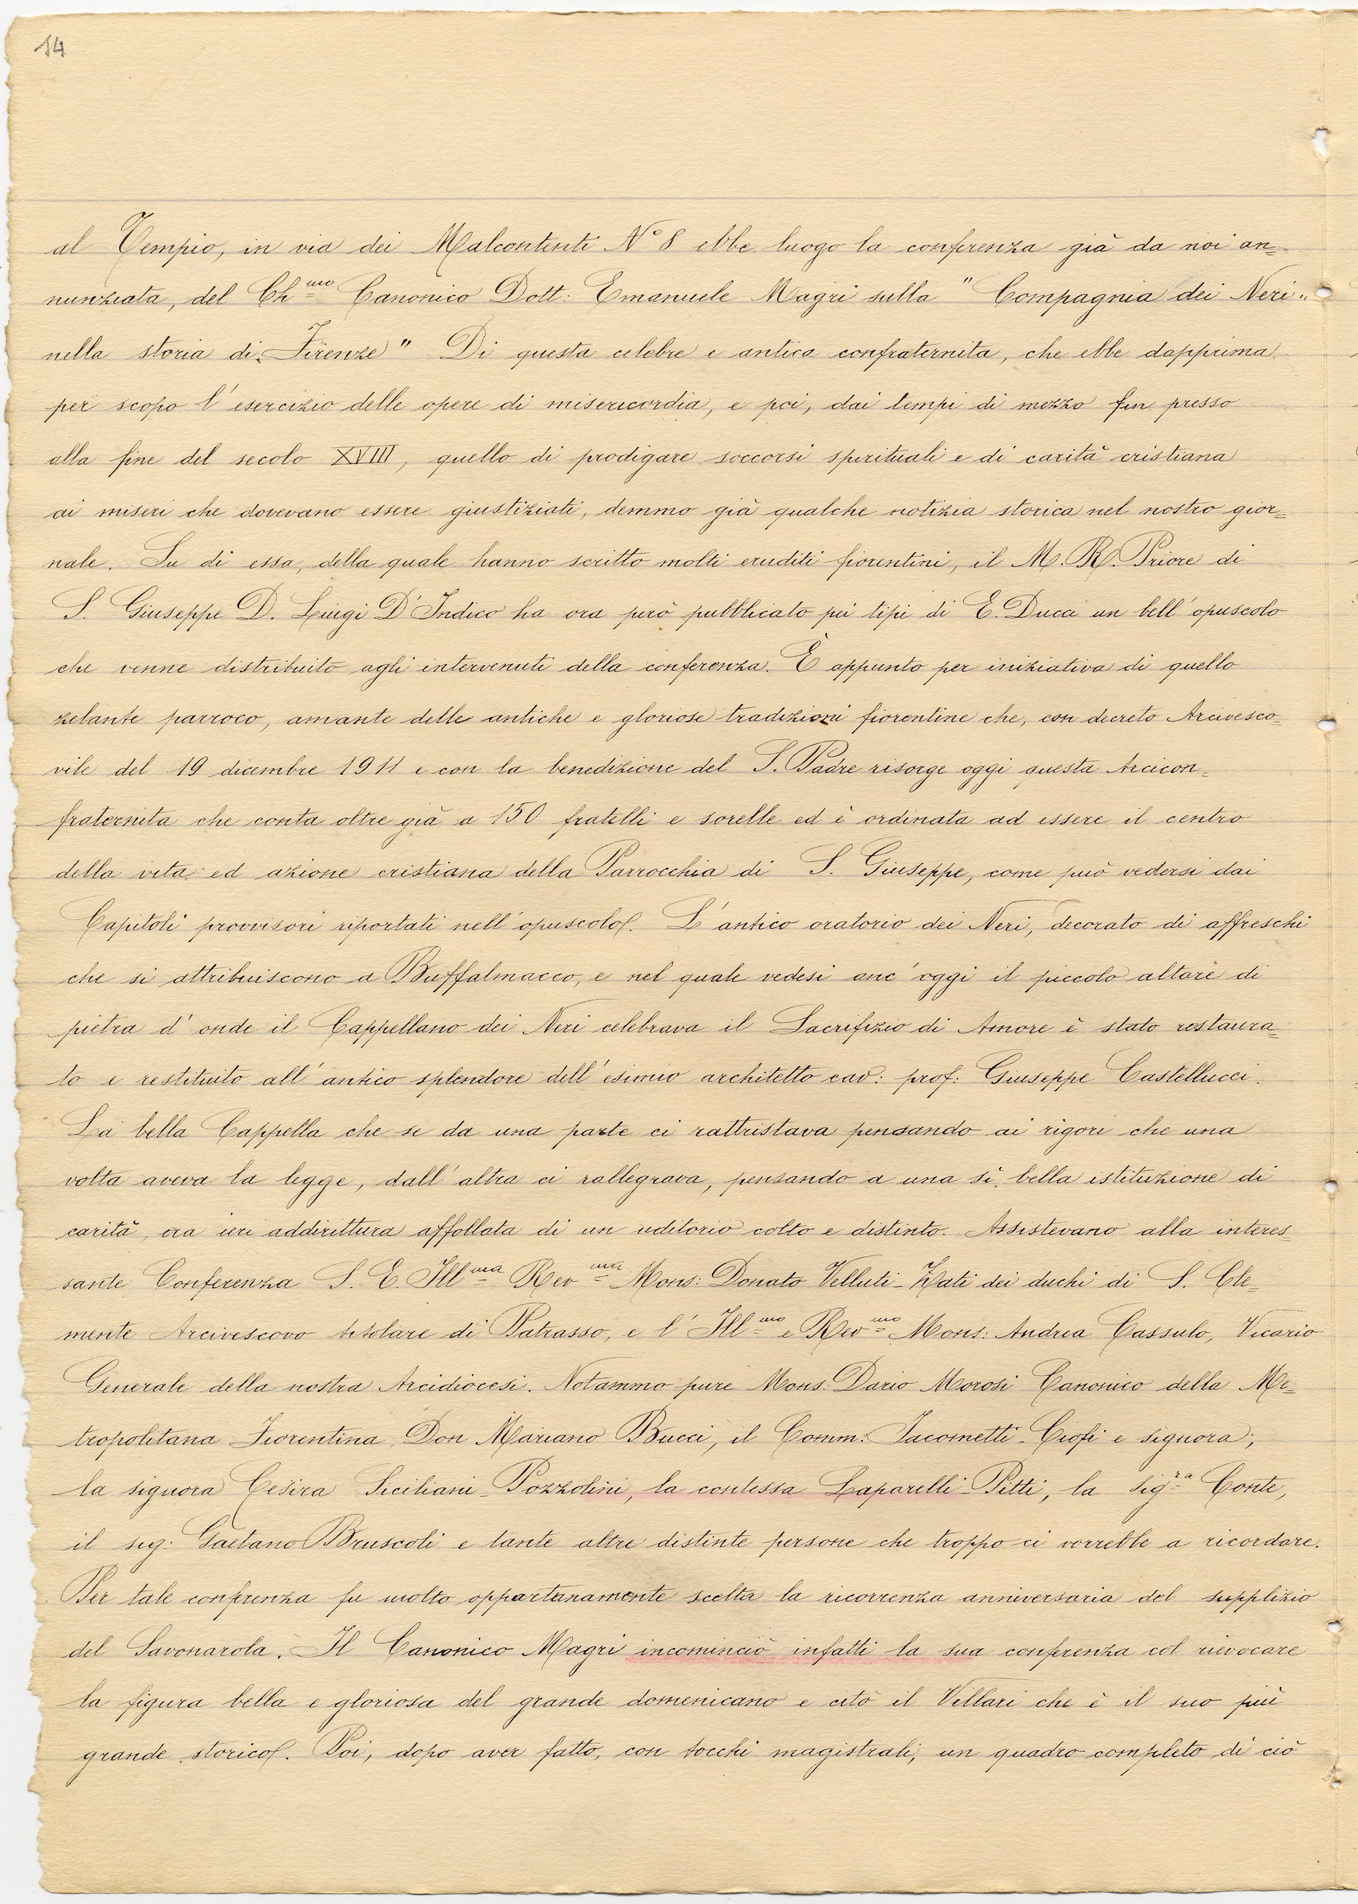 14
al Tempio, in via dei Malcontenti N° 8 ebbe luogo la conferenza già da noi an=
nunziata, del Ch.mo Canonico Dott: Emanuele Magri sulla "Compagnia dei Neri"
nella storia di Firenze" Di questa celebre e antica confraternita, che ebbe dapprima
per scopo l'esercizio delle opere di misericordia, e poi, dai tempi di mezzo fin presso
alla fine del secolo XVIII, quello di prodigare soccorsi spirituali e di carità cristiana
ai miseri che dovevano essere giustiziati, demmo già qualche notizia storica nel nostro gior=
nale. Su di essa, della quale hanno scritto molti eruditi fiorentini, il M. R. Priore di
S. Giuseppe D. Luigi D'Indico ha ora però pubblicato pei tipi di E. Ducci un bell'opuscolo
che venne distribuito agli intervenuti della conferenza. È appunto per iniziativa di quello
zelante parroco, amante delle antiche e gloriose tradizioni fiorentine che, con decreto Arcivesco=
vile del 19 dicembre 1911 e con la benedizione del S. Padre risorge oggi questa Arcicon=
fraternita che conta oltre già a 150 fratelli e sorelle ed è ordinata ad essere il centro
della vita ed azione cristiana della Parrocchia di S. Giuseppe, come può vedersi dai
Capitoli provvisori riportati nell'opuscolo. L'antico oratorio dei Neri, decorato di affreschi
che si attribuiscono a Buffalmacco, e nel quale vedesi anc'oggi il piccolo altare di
pietra d'onde il Cappellano dei Neri celebrava il Sacrifizio di Amore è stato restaura=
to e restituito all'antico splendore dell'esimio architetto cav: prof: Giuseppe Castellucci.
La bella Cappella che se da una parte ci rattristava pensando ai rigori che una
volta aveva la legge, dall'altra ci rallegrava, pensando a una sì bella istituzione di
carità, era ieri addirittura affollata di un uditorio colto e distinto. Assistevano alla interes=
sante Conferenza S. E. Ill.ma Rev.ma Mons: Donato Velluti-Zati dei duchi di S. Cle=
mente Arcivescovo titolare di Patrasso, e l'Ill.mo e Rev.mo Mons: Andrea Cassulo, Vicario
Generale della nostra Arcidiocesi. Notammo pure Mons: Dario Morosi Canonico della Me=
tropolitana Fiorentina, Don Mariano Bucci, il Comm: Jacometti-Ciofi e signora;
la signora Cesira Siciliani-Pozzolini, la contessa Laparelli-Pitti, la Sig.ra Conte,
il sig: Gaetano Bruscoli e tante altre distinte persone che troppo ci vorrebbe a ricordare.
Per tale conferenza fu molto opportunamente scelta la ricorrenza anniversaria del supplizio
del Savonarola. Il Canonico Magri incominciò infatti la sua conferenza col rievocare
la figura bella e gloriosa del grande domenicano e citò il Villari che è il suo più
grande storico. Poi, dopo aver fatto, con tocchi magistrali, un quadro completo di ciò